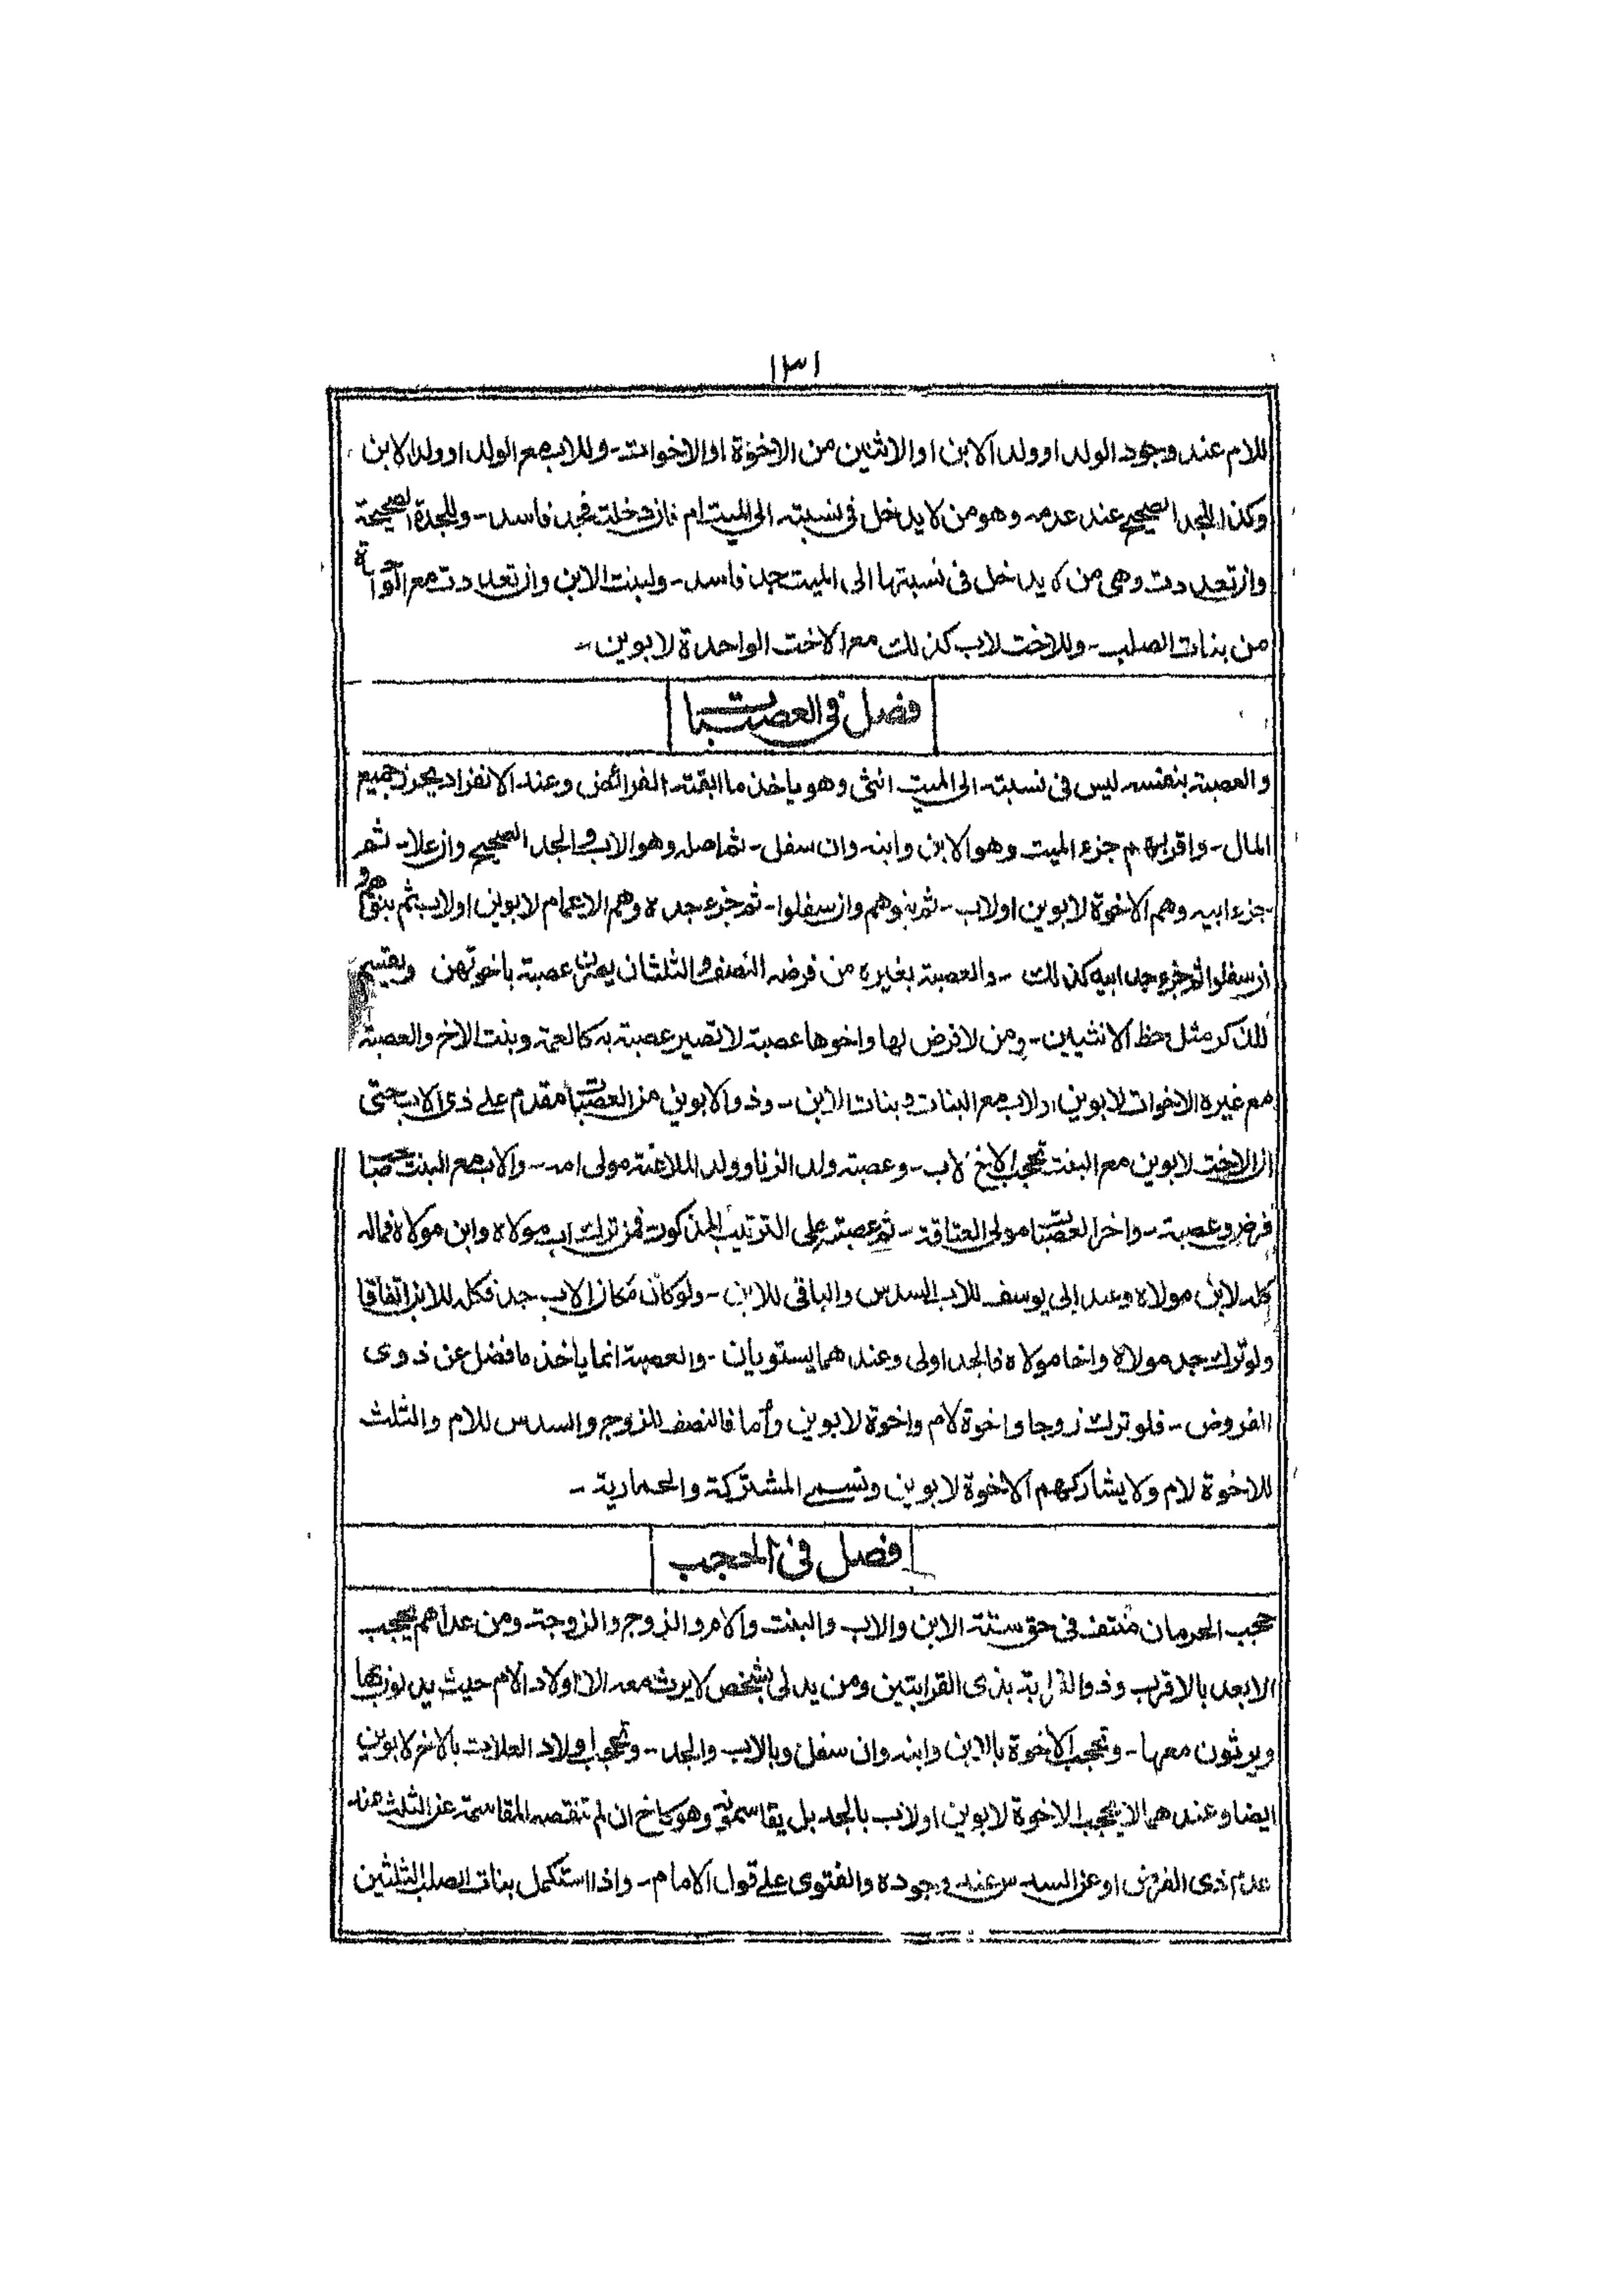 ١٣١
للام عند وجود الولد او ولد الابن او الاثنين من الاخوة او الاخوات - وللاب مع الولد او ولد الابن
وكذا للجد الصحيح عند عدمه وهو من لا يدخل فى نسبته الى الميت ام فان دخلت فجد فاسد - وللجدة الصحيحة
وان تعددت وهى من لا يدخل فى نسبتها الى الميت جد فاسد - ولبنت الابن وان تعددت مع الواحدة
من بنات الصلب - وللاخت لاب كذلك مع الاخت الواحدة لابوين -
فصل فى العصبات
والعصبة بنفسه ليس فى نسبته الى الميت انثى وهو ياخذ ما ابقته الفرائض وعند الانفراد يحرز جميع
المال - واقربهم جزء الميت وهو الابن وابنه وان سفل - ثم اصله وهو الاب والجد الصحيح وان علا - ثم
جزء ابيه وهم الاخوة لابوين او لاب - ثم بنوهم وان سفلوا - ثم جزء جده وهم الاعمام لابوين او لاب ثم بنوهم و
ان سفلوا ثم جزء جد ابيه كذلك - والعصبة بغيره من فرضه النصف والثلثان يصرن عصبة باخوتهن ويقسم
للذكر مثل حظ الانثيين - ومن لا فرض لها واخوها عصبة لا تصير عصبة به كالعمة وبنت الاخ والعصبة
مع غيره الاخوات لابوين او لاب مع البنات وبنات الابن - وذو الابوين من العصبات مقدم على ذى الاب حتى
ان الاخت لابوين مع البنت تحجب الاخ لاب - وعصبة ولد الزنا وولد الملاعنة مولى امه - والاب مع البنت صاحب
فرض وعصبة - واخر العصبات مولى العتاقة - ثم عصبته على الترتيب المذكور فمن ترك اب مولاه وابن مولاه فماله
كله لابن مولاه وعند ابى يوسف للاب السدس والباقى للابن - ولو كان مكان الاب جد فكله للابن اتفاقا
ولو ترك جد مولاه واخا مولاه فالجد اولى وعندهما يستويان - والعصبة انما ياخذ ما فضل عن ذوى
الفروض - فلو تركت زوجا واخوة لام واخوة لابوين واما فالنصف للزوج والسدس للام والثلث
للاخوة لام ولا يشاركهم الاخوة لابوين وتسمى المشتركة والحمارية -
فصل فى الحجب
حجب الحرمان منتف فى حق ستة الابن والاب والبنت والام والزوج والزوجة ومن عداهم يحجب
الابعد بالاقرب وذو القرابة بذى القرابتين ومن يدلى بشخص لا يرث معه الا اولاد الام حيث يدلون بها
ويرثون معها - وتحجب الاخوة بالابن وابنه وان سفل وبالاب والجد - وتحجب اولاد العلات بالاخ لابوين
ايضا وعندهما لا يحجب الاخوة لابوين او لاب بالجد بل يقاسمونه وهو كاخ ان لم تنقصه المقاسمة عن الثلث عند
عدم ذى الفرض او عن السدس عند وجوده والفتوى على قول الامام - واذا استكمل بنات الصلب الثلثين